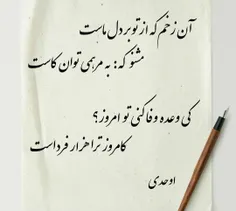 آن زخم که از تو بر دل ماست
مشنو که: به مرهمی توان کاست
کی وعده وفا کنی تو امروز؟
کامروز ترا هزار فرداست
اوحدی